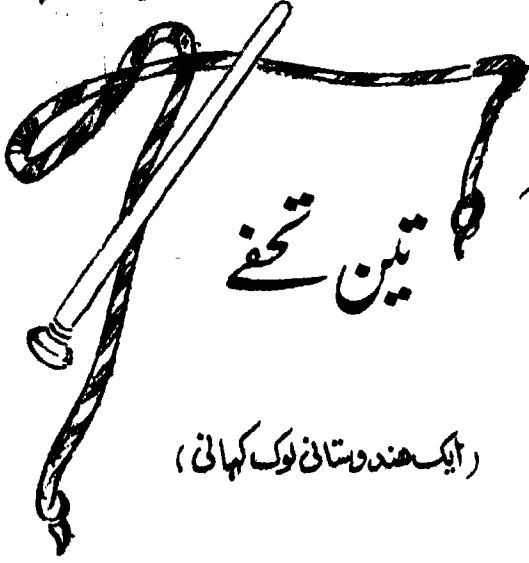 تین تحفے
(ایک ھندوستانی لوک کہانی)